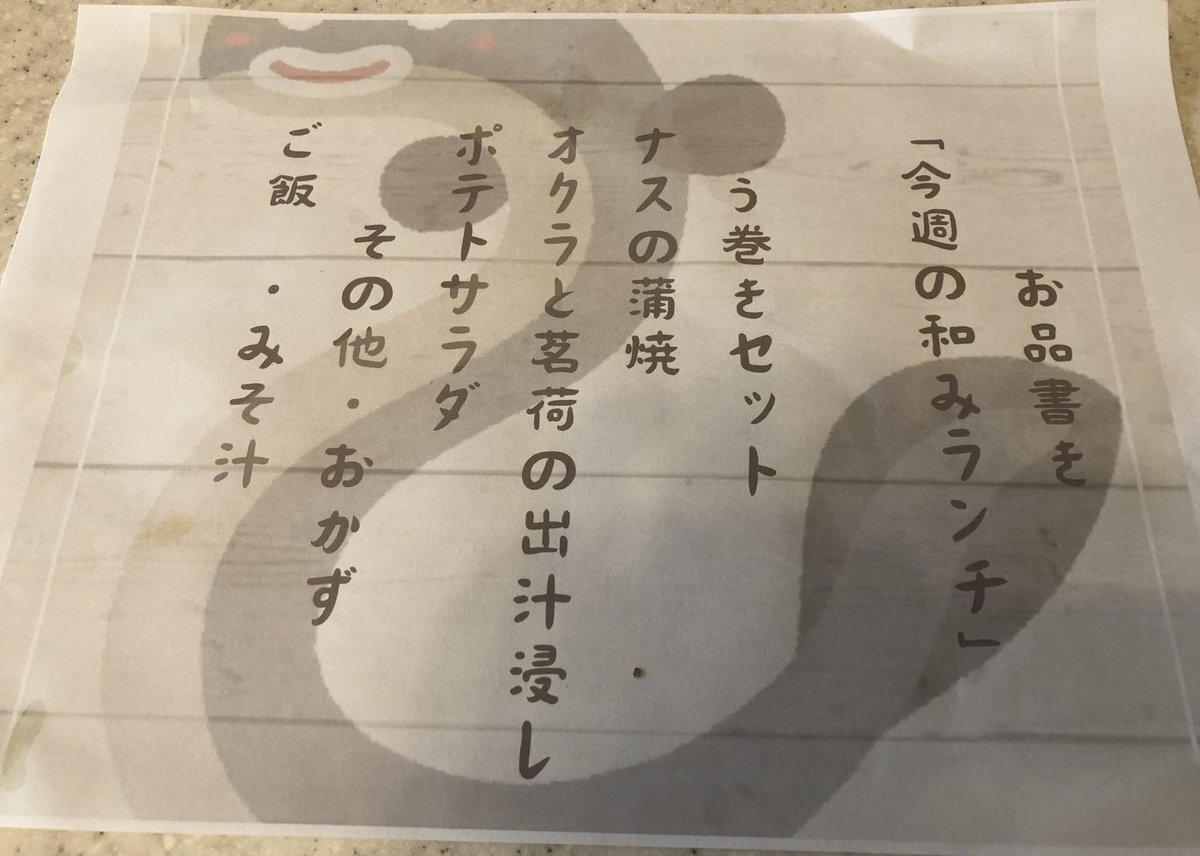 お品書き
「今週の和みランチ」
う巻きセット
ナスの蒲焼
オクラと茗荷の出汁浸し
ポテトサラダ
その他・おかず
ご飯・みそ汁